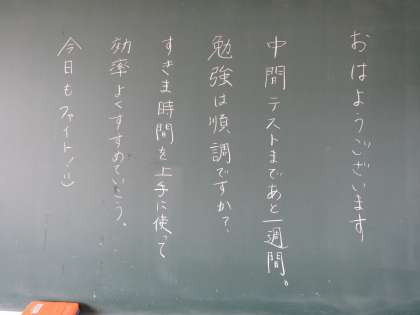 おはようございます
中間テストまであと一週間。
勉強は順調ですか?
すきま時間を上手に使って
効率よくすすめていこう。
今日もファイト!:)